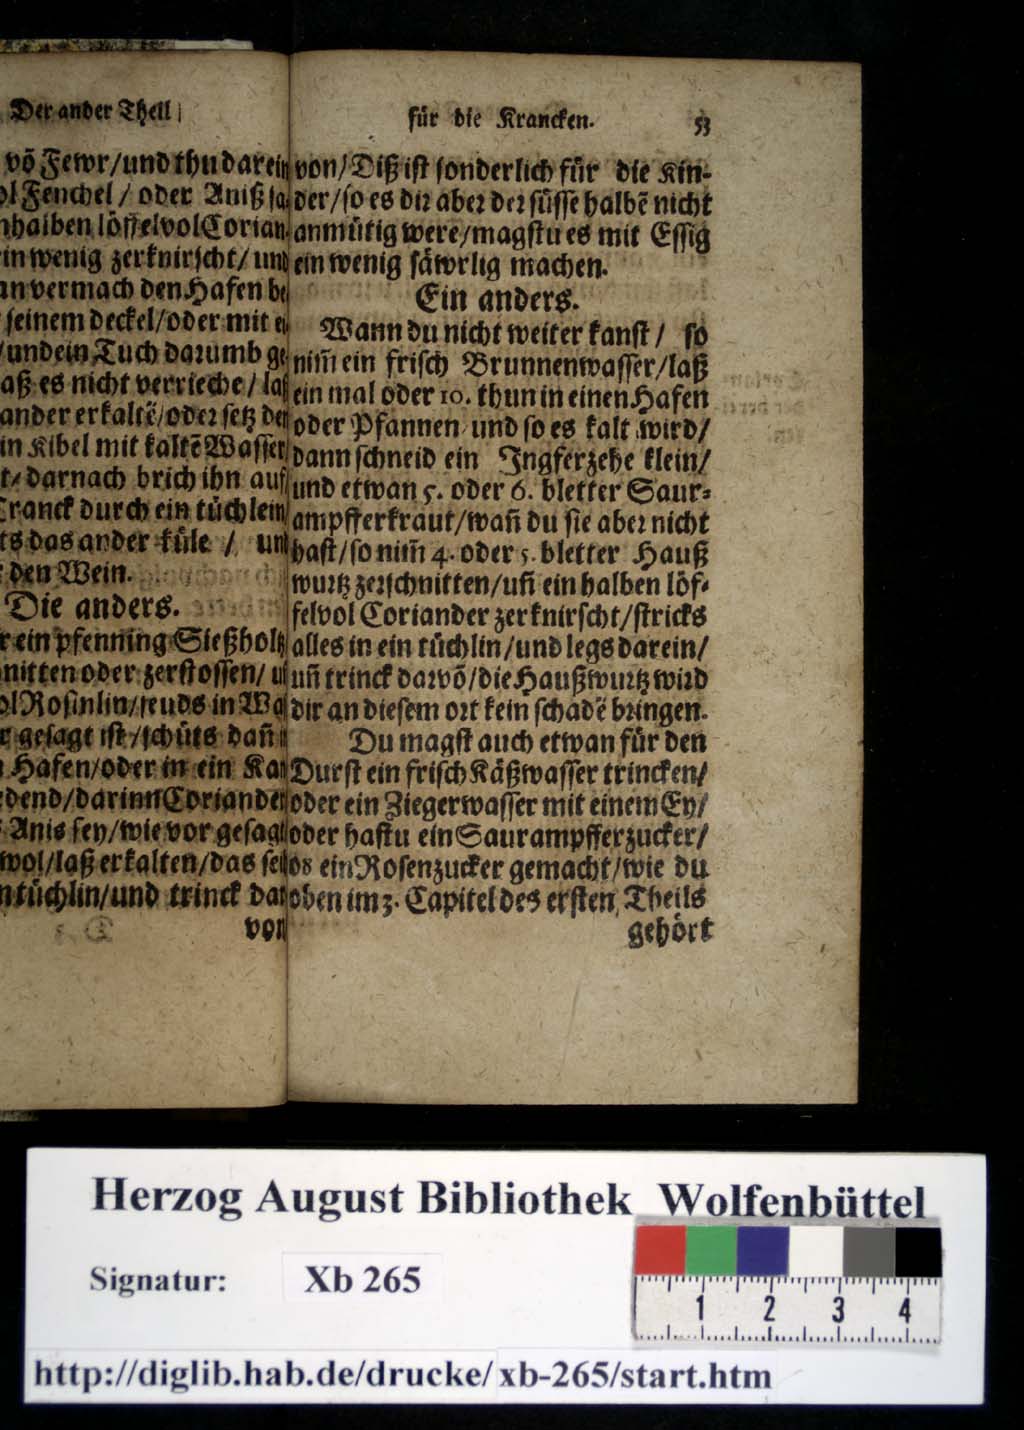 Der ander Theil
võ Fewr/und thu darein
ol Fenchel / oder Aniß sa
nhalben löffelvol Corian
in wenig zerknirscht/ und
an vermach den Hafen be
seinem deckel/oder mit ei
/und ein Tuch darumb ge
aß es nicht verrieche/ laß
ander erkaltē/oder setz den
in Kibel mit kaltē Wasser
t/ darnach brich ihn auf
Cranck durch ein tüchlein
ts das ander küle / und
den Wein.
Die anders.
r ein pfenning Sießholtz
nitten oder zerstossen/ u
ol Rosinlin/seuds in Wa
r gesagt ist/schüts dañ i
Hafen/oder in ein Kan
dend/darinn Coriander
Anis sey/wie vor gesagt
wol/laß erkalten/das sei
ntüchlin/und trinck dar
von
für die Krancken. 53
von/Diß ist sonderlich für die Kin-
der/so es dir aber der süsse halbē nicht
anmütig were/magstu es mit Essig
ein wenig säwrlig machen.
Ein anders.
Wann du nicht weiter kanst/ so
nim̃ ein frisch Brunnenwasser/laß
ein mal oder 10. thun in einen Hafen
oder Pfannen und so es kalt wird/
dann schneid ein Ingferzehe klein/
und etwan 5. oder 6. bletter Saur-
ampfferkraut/wañ du sie aber nicht
hast/so nim̃ 4. oder 5. bletter Hauß
wurtz zerschnitten/uñ ein halben löf-
felvol Coriander zerknirscht/stricks
alles in ein tüchlin/und legs darein/
uñ trinck darvõ/die Haußwurtz wird
dir an diesem ort kein schadē bringen.
Du magst auch etwan für den
Durst ein frisch Käßwasser trincken/
oder ein Ziegerwasser mit einem Ey/
oder hastu ein Saurampfferzucker/
od ein Rosenzucker gemacht/wie du
oben im 3. Capitel des ersten Theils
gehört
Herzog August Bibliothek Wolfenbüttel
Signatur: Xb 265
1 2 3 4
http://diglib.hab.de/drucke/xb-265/start.htm